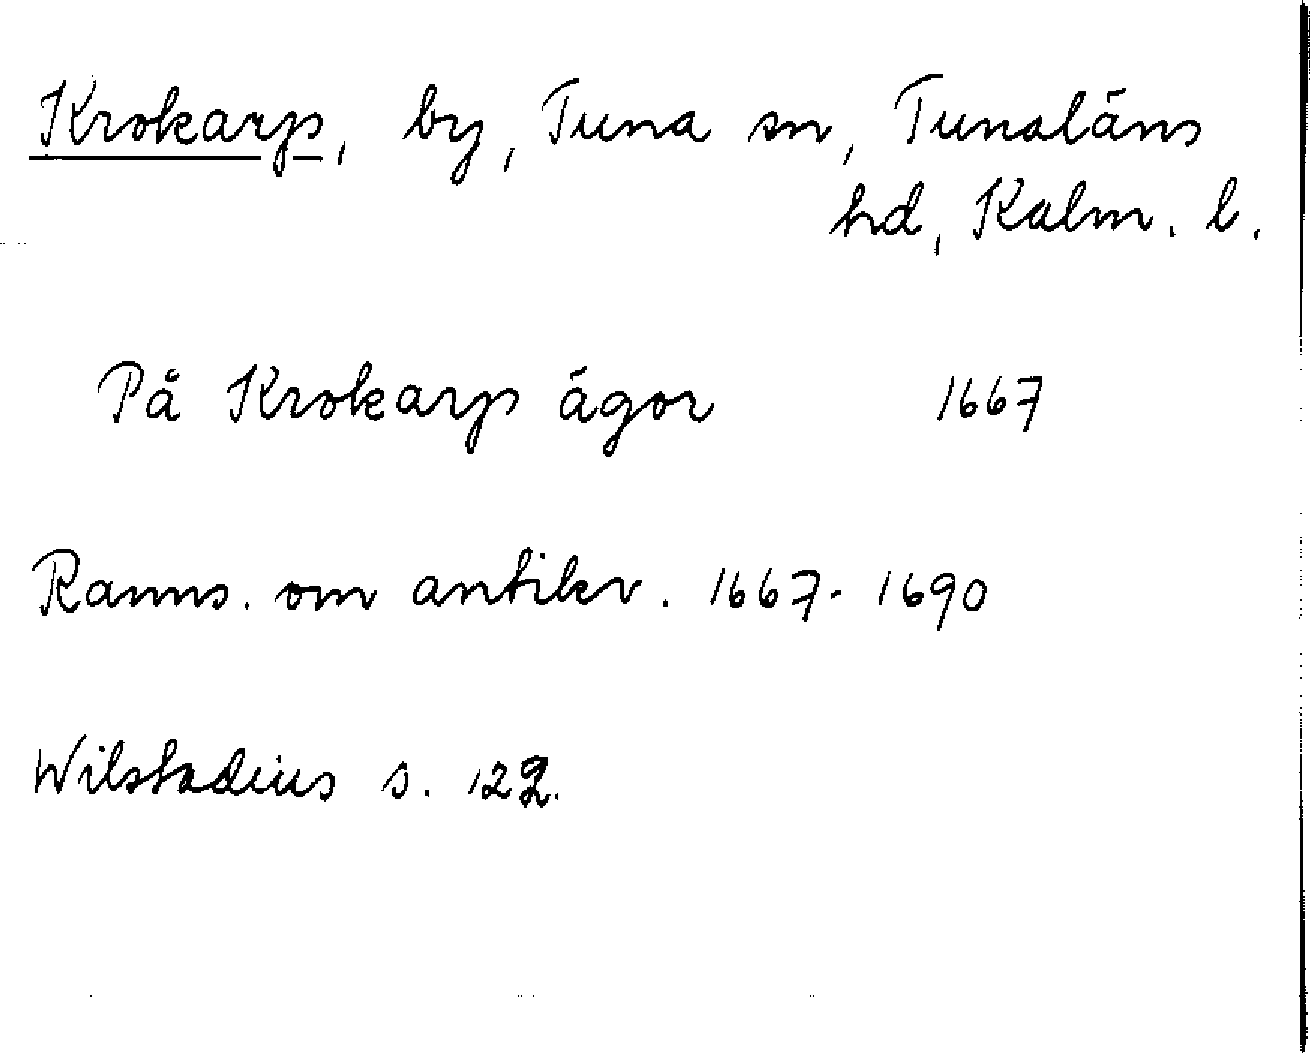 Krokarp, by, Tuna sn, Tunaläns
hd, Kalm. l.
På Krokarp ägor 1667
Ranns. om antikv. 1667-1690
Wilstadius s. 122.